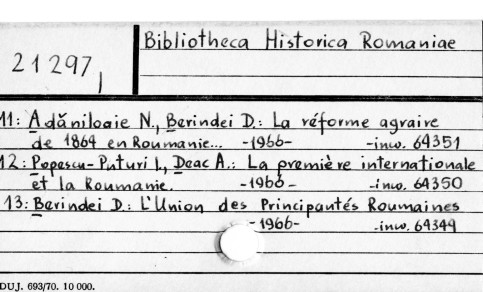 Bibliotheca Historica Romaniae
21297,
11: Adăniloaie N., Berindei D.: La réforme agraire
de 1864 en Roumanie... -1966- -inv. 64351
12: Popescu-Puturi I., Deac A.: La première internationale
et la Roumanie. -1966- -inv. 64350
13: Berindei D.: L'Union des Principautés Roumaines
-1966- -inv. 64349
DUJ. 693/70. 10 000.